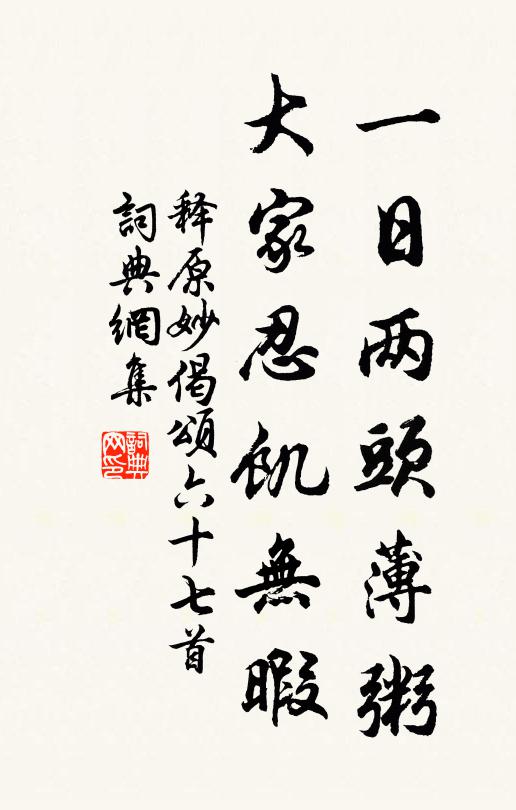 一日两頭薄粥
大家忍飢無暇
释原妙偈頌六十七首
詞典網集
詞典网印